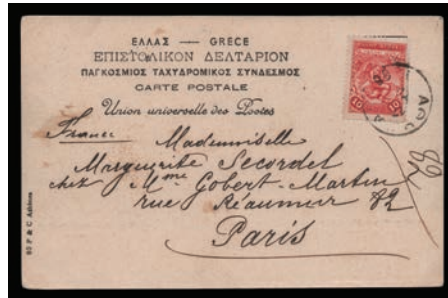 ΕΛΛΑΣ — GRECE
ΕΠΙΣΤΟΛΙΚΟΝ ΔΕΛΤΑΡΙΟΝ
ΠΑΓΚΟΣΜΙΟΣ ΤΑΧΥΔΡΟΜΙΚΟΣ ΣΥΝΔΕΣΜΟΣ
CARTE POSTALE
Union universelle des Postes
France
Mademoiselle
Marguerite Secordel
chez Mme Gobert-Martin
rue Réaumur 82
Paris
82
10 10